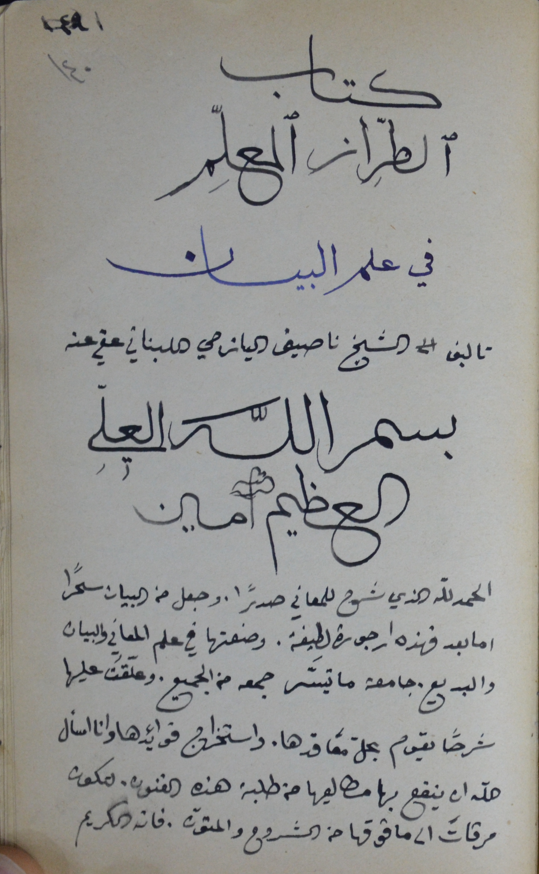 ١٤٠
كتاب
الطِّراز المعلِّم
في علم البيان
تاليف الشيخ ناصيف اليازجي اللبناني عفي عنه
بسم اللّه العليِّ
العظيم آمين
الحمد للّه الذي شرح للمعاني صدرًا. وجعل من البيان سحرًا
اما بعد فهذه ارجوزة لطيفة. وضعتها في علم المعاني والبيان
والبديع. جامعة ما تيسّر جمعه من الجميع. وعلّقتُ عليها
شرحًا يقوم بحلّ مقاقدها. واستخراج فوائدها وانا اسأل
اللّه ان ينفع بها مطالعها من طلبة هذه الفنون. لتكون
مرقاتً الى ما فوقها من الشروح والمتون. فانه الكريم